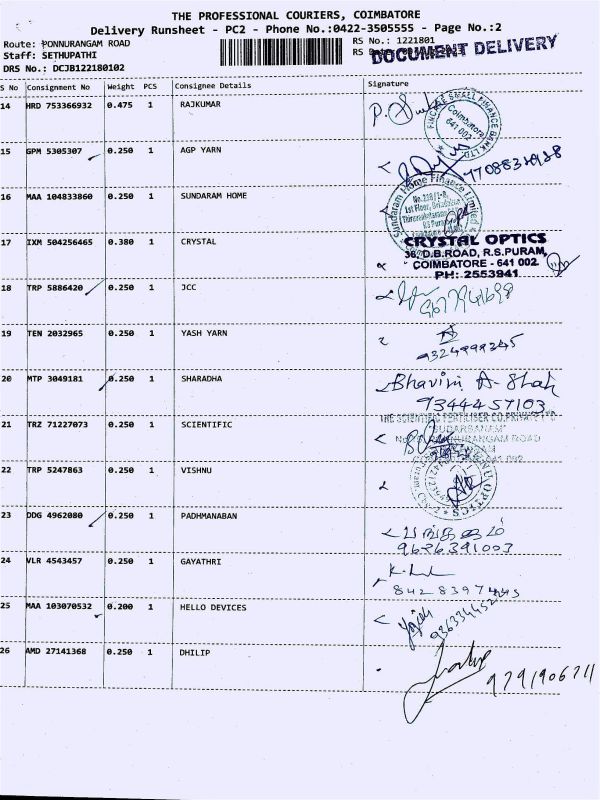 THE PROFESSIONAL COURIERS, COIMBATORE
Delivery Runsheet - PC2 - Phone No.:0422-3505555 - Page No.:2
Route: PONNURANGAM ROAD
RS No.: 1221801
Staff: SETHUPATHI
RS
DOCUMENT DELIVERY
DRS No.: DCJB122180102
S No Consignment No Weight PCS Consignee Details Signature
14 HRD 753366932 0.475 1 RAJKUMAR
FINCARE SMALL FINANCE BANK LTD.
Coimbatore
641 002
15 GPM 5305307 0.250 1 AGP YARN
16 MAA 104833860 0.250 1 SUNDARAM HOME
Sundaram Home Finance Limited
1st Floor,
17 IXM 504256465 0.380 1 CRYSTAL
CRYSTAL OPTICS
36, D.B.ROAD, R.S.PURAM,
COIMBATORE - 641 002.
PH: 2553941
18 TRP 5886420 0.250 1 JCC
19 TEN 2032965 0.250 1 YASH YARN
9324999345
20 MTP 3049181 0.250 1 SHARADHA
Bhavini A. Shah
9344457103
21 TRZ 71227073 0.250 1 SCIENTIFIC
THE SCIENTIFIC FERTILISER CO.PRIVATE LTD
"SUDARSANAM"
PONNURANGAM ROAD
22 TRP 5247863 0.250 1 VISHNU
OPTICS
23 DDG 4962080 0.250 1 PADHMANABAN
9626391003
24 VLR 4543457 0.250 1 GAYATHRI
25 MAA 103070532 0.200 1 HELLO DEVICES
26 AMD 27141368 0.250 1 DHILIP